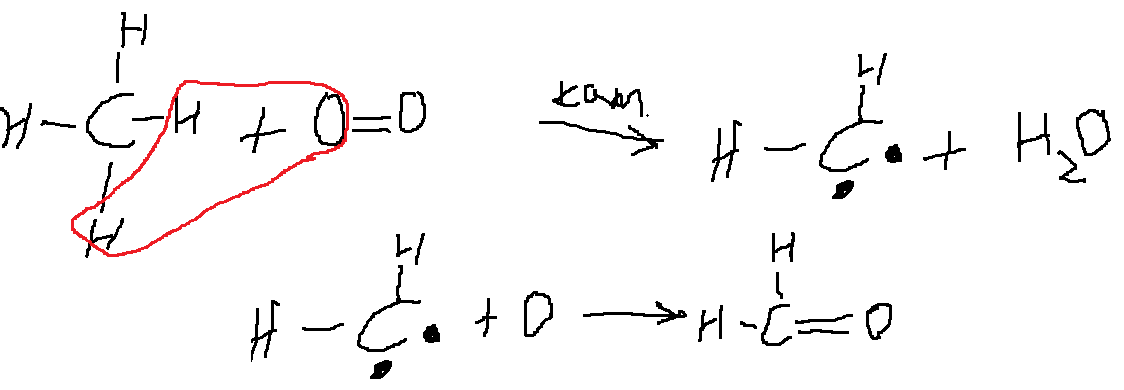 H
H–C–H + O=O
H
кат.
H
H–C• + H₂O
H
H–C• + O → H
H–C=O